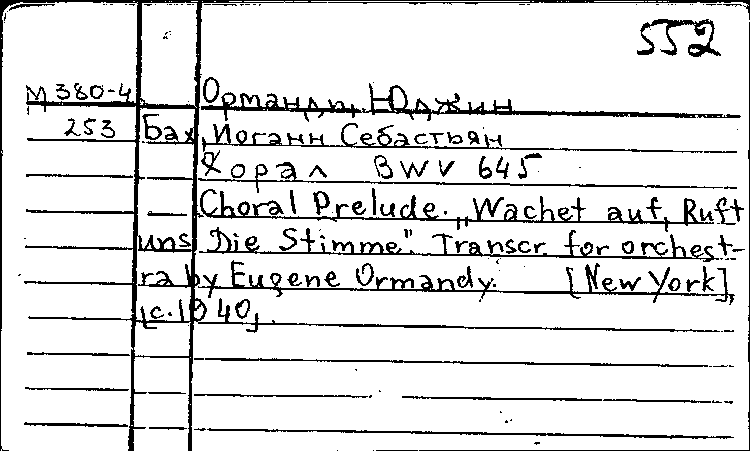 552
М 380-4 Орманди, Юджин
253 Бах, Иоганн Себастьян
Хорал BWV 645
Choral Prelude. „Wachet auf, Ruft
uns Die Stimme". Transcr. for orchest-
ra by Eugene Ormandy. [New York],
[c. 1940].